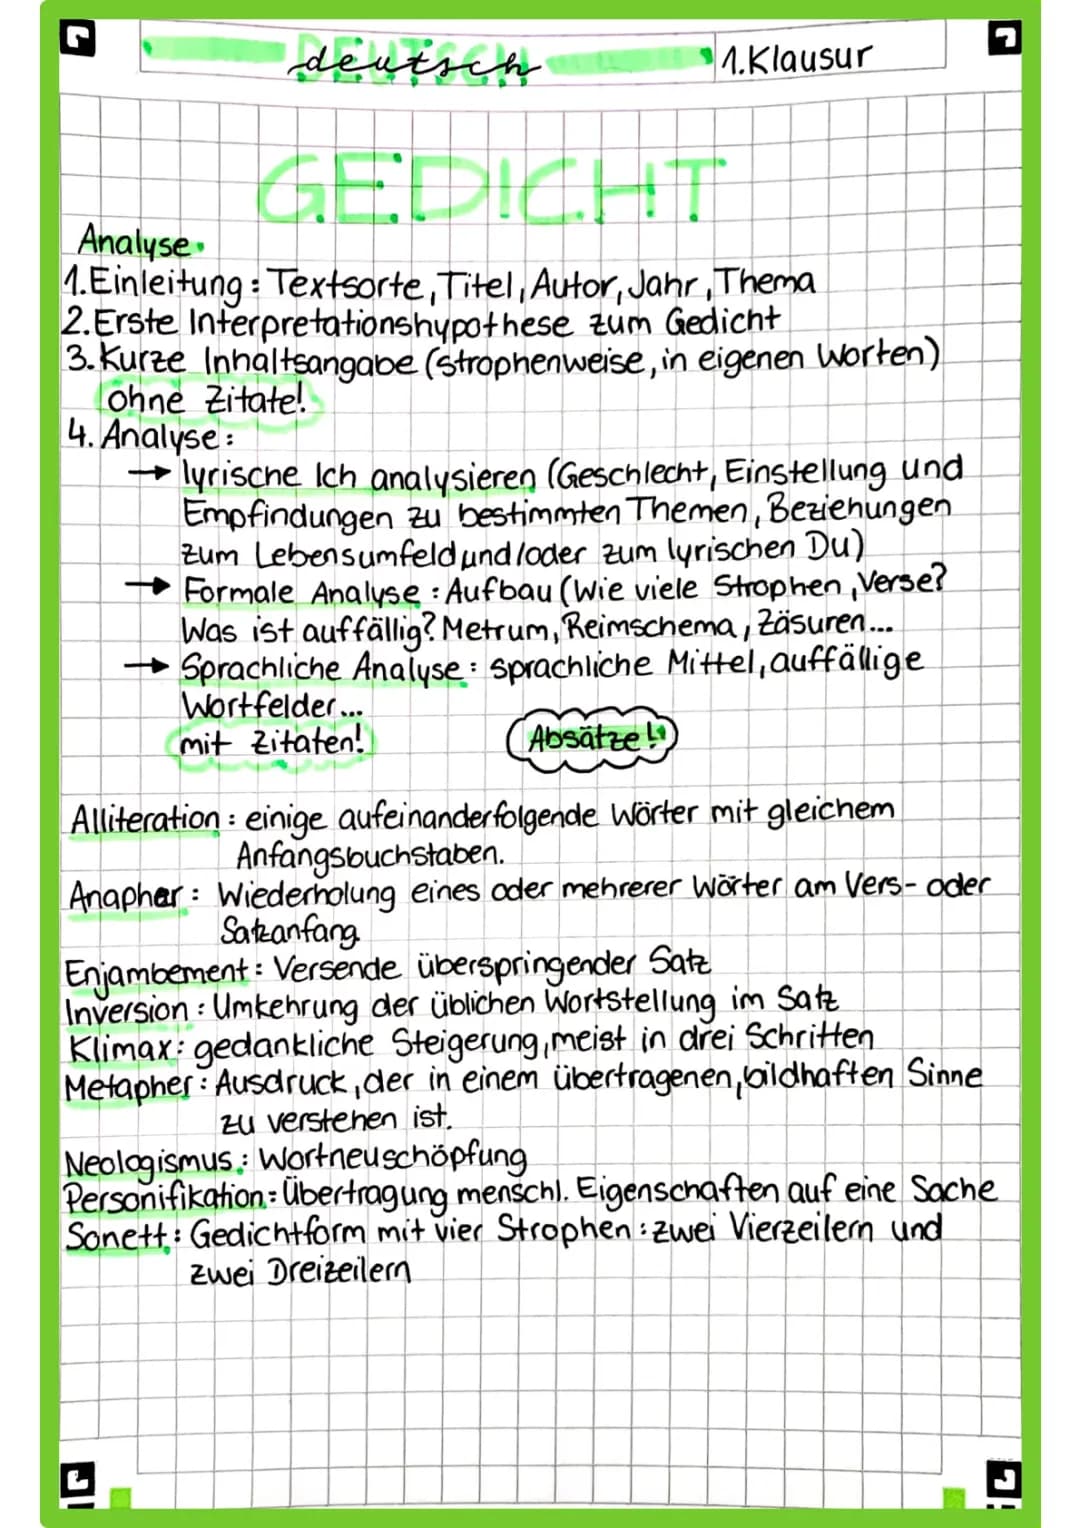 DEUTSCH
deutsch
1.Klausur
GEDICHT
Analyse.
1.Einleitung: Textsorte, Titel, Autor, Jahr, Thema
2.Erste Interpretationshypothese zum Gedicht
3.Kurze Inhaltsangabe (strophenweise, in eigenen Worten)
ohne Zitate!
4. Analyse:
→ lyrische Ich analysieren (Geschlecht, Einstellung und
Empfindungen zu bestimmten Themen, Beziehungen
zum Lebensumfeld und/oder zum lyrischen Du)
→ Formale Analyse: Aufbau (Wie viele Strophen, Verse?
Was ist auffällig? Metrum, Reimschema, Zäsuren...
→ Sprachliche Analyse: sprachliche Mittel, auffällige
Wortfelder...
mit Zitaten!
Absätze!
Alliteration: einige aufeinanderfolgende Wörter mit gleichem
Anfangsbuchstaben.
Anapher: Wiederholung eines oder mehrerer Wörter am Vers- oder
Satzanfang
Enjambement: Versende überspringender Satz
Inversion: Umkehrung der üblichen Wortstellung im Satz
Klimax: gedankliche Steigerung, meist in drei Schritten
Metapher: Ausdruck, der in einem übertragenen, bildhaften Sinne
zu verstehen ist.
Neologismus: Wortneuschöpfung
Personifikation: Übertragung menschl. Eigenschaften auf eine Sache
Sonett: Gedichtform mit vier Strophen: zwei Vierzeilern und
zwei Dreizeilern